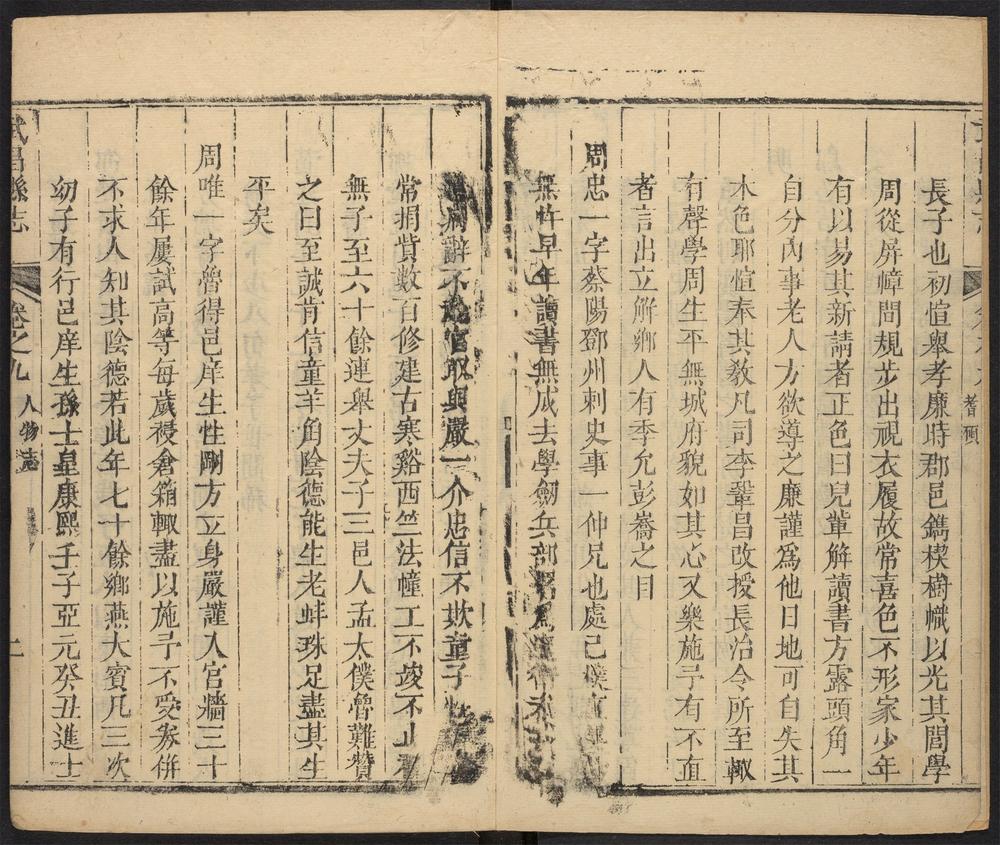 耆碩
長子也初愃舉孝廉時郡邑鐫楔樹幟以光其閭學
周從屏幛間規步出視衣履故常喜色不形家少年
有以易其新請者正色曰兒輩解讀書方露頭角一
自分內事老人方欲導之廉謹為他日地可自失其
本色耶愃奉其教凡司李鞏昌改授長治令所至輒
有聲學周生平無城府貌如其心又樂施予有不直
者言出立解鄉人有季允彭嵩之目
周忠一字蔡陽鄧州刺史事一仲兄也處己
無忤早年讀書無成去學劍兵部
病辭不 官取與嚴一介忠信不欺童子
常捐貲數百修建古寒谿西竺法幢工不竣不止
無子至六十餘連舉丈夫子三邑人孟太僕曾難贊
之曰至誠肯信童羊角陰德能生老蚌珠足盡其生
平矣
周唯一字曾得邑庠生性剛方立身嚴謹入宮牆三十
餘年屢試高等每歲祲倉箱輒盡以施予不受券併
不求人知其陰德若此年七十餘鄉燕大賓凡三次
幼子有行邑庠生孫士皇康熙壬子亞元癸丑進士
武昌縣志 卷之九 人物志